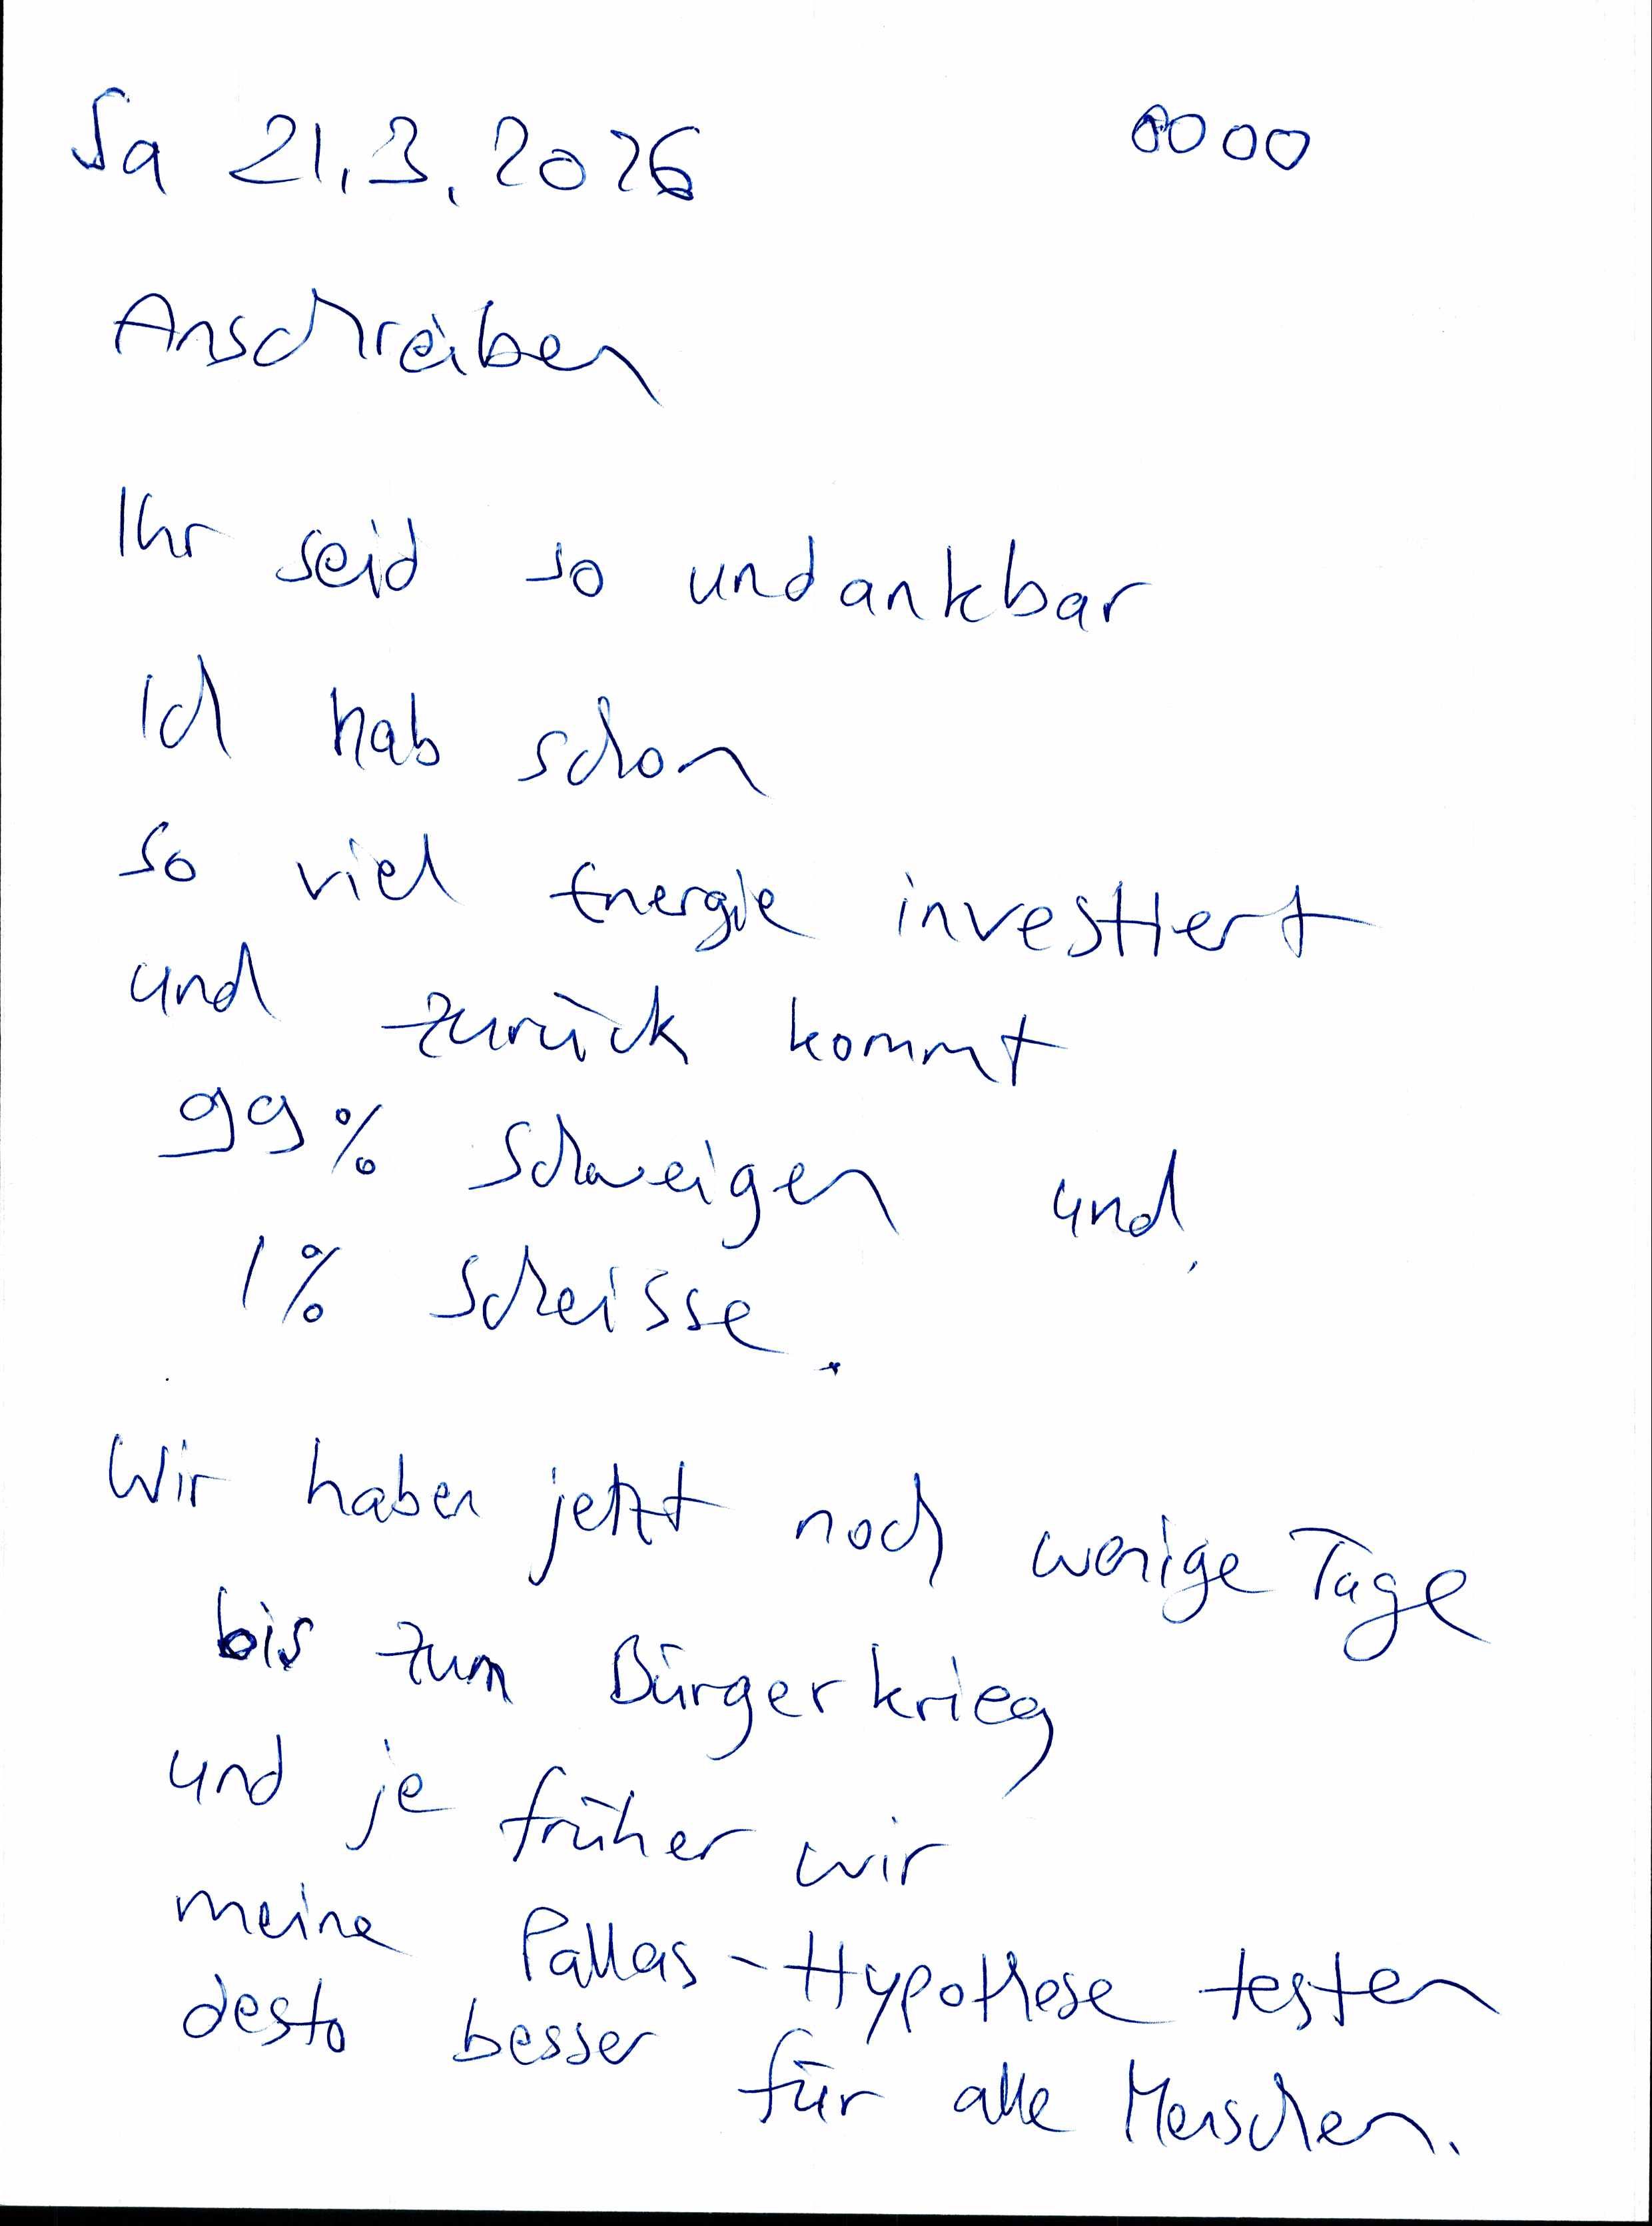 Sa 21.3.2026 0000
Anschreiben
Ihr seid so undankbar
Ich hab schon
so viel Energie investiert
und zurück kommt
99% Schweigen und
1% Scheisse.
Wir haben jetzt noch wenige Tage
bis zum Bürgerkrieg
und je früher wir
meine Pallas-Hypothese testen
desto besser
für alle Menschen.